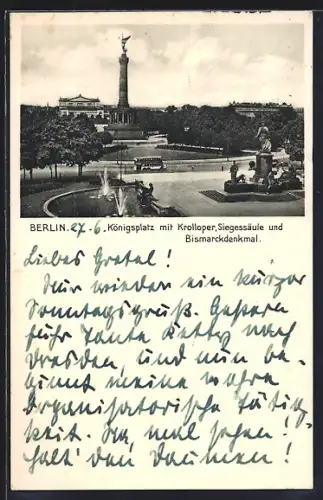 BERLIN. 27.6. Königsplatz mit Krolloper, Siegessäule und
Bismarckdenkmal.
Liebes Gretel!
Nur wieder ein kurzer
Sonntagsgruß. Gestern
fuhr Tante Ketty nach
Dresden, und nun be-
ginnt meine wahre
organisatorische Tätig-
keit. Na, mal sehen!
Halt' den Daumen!